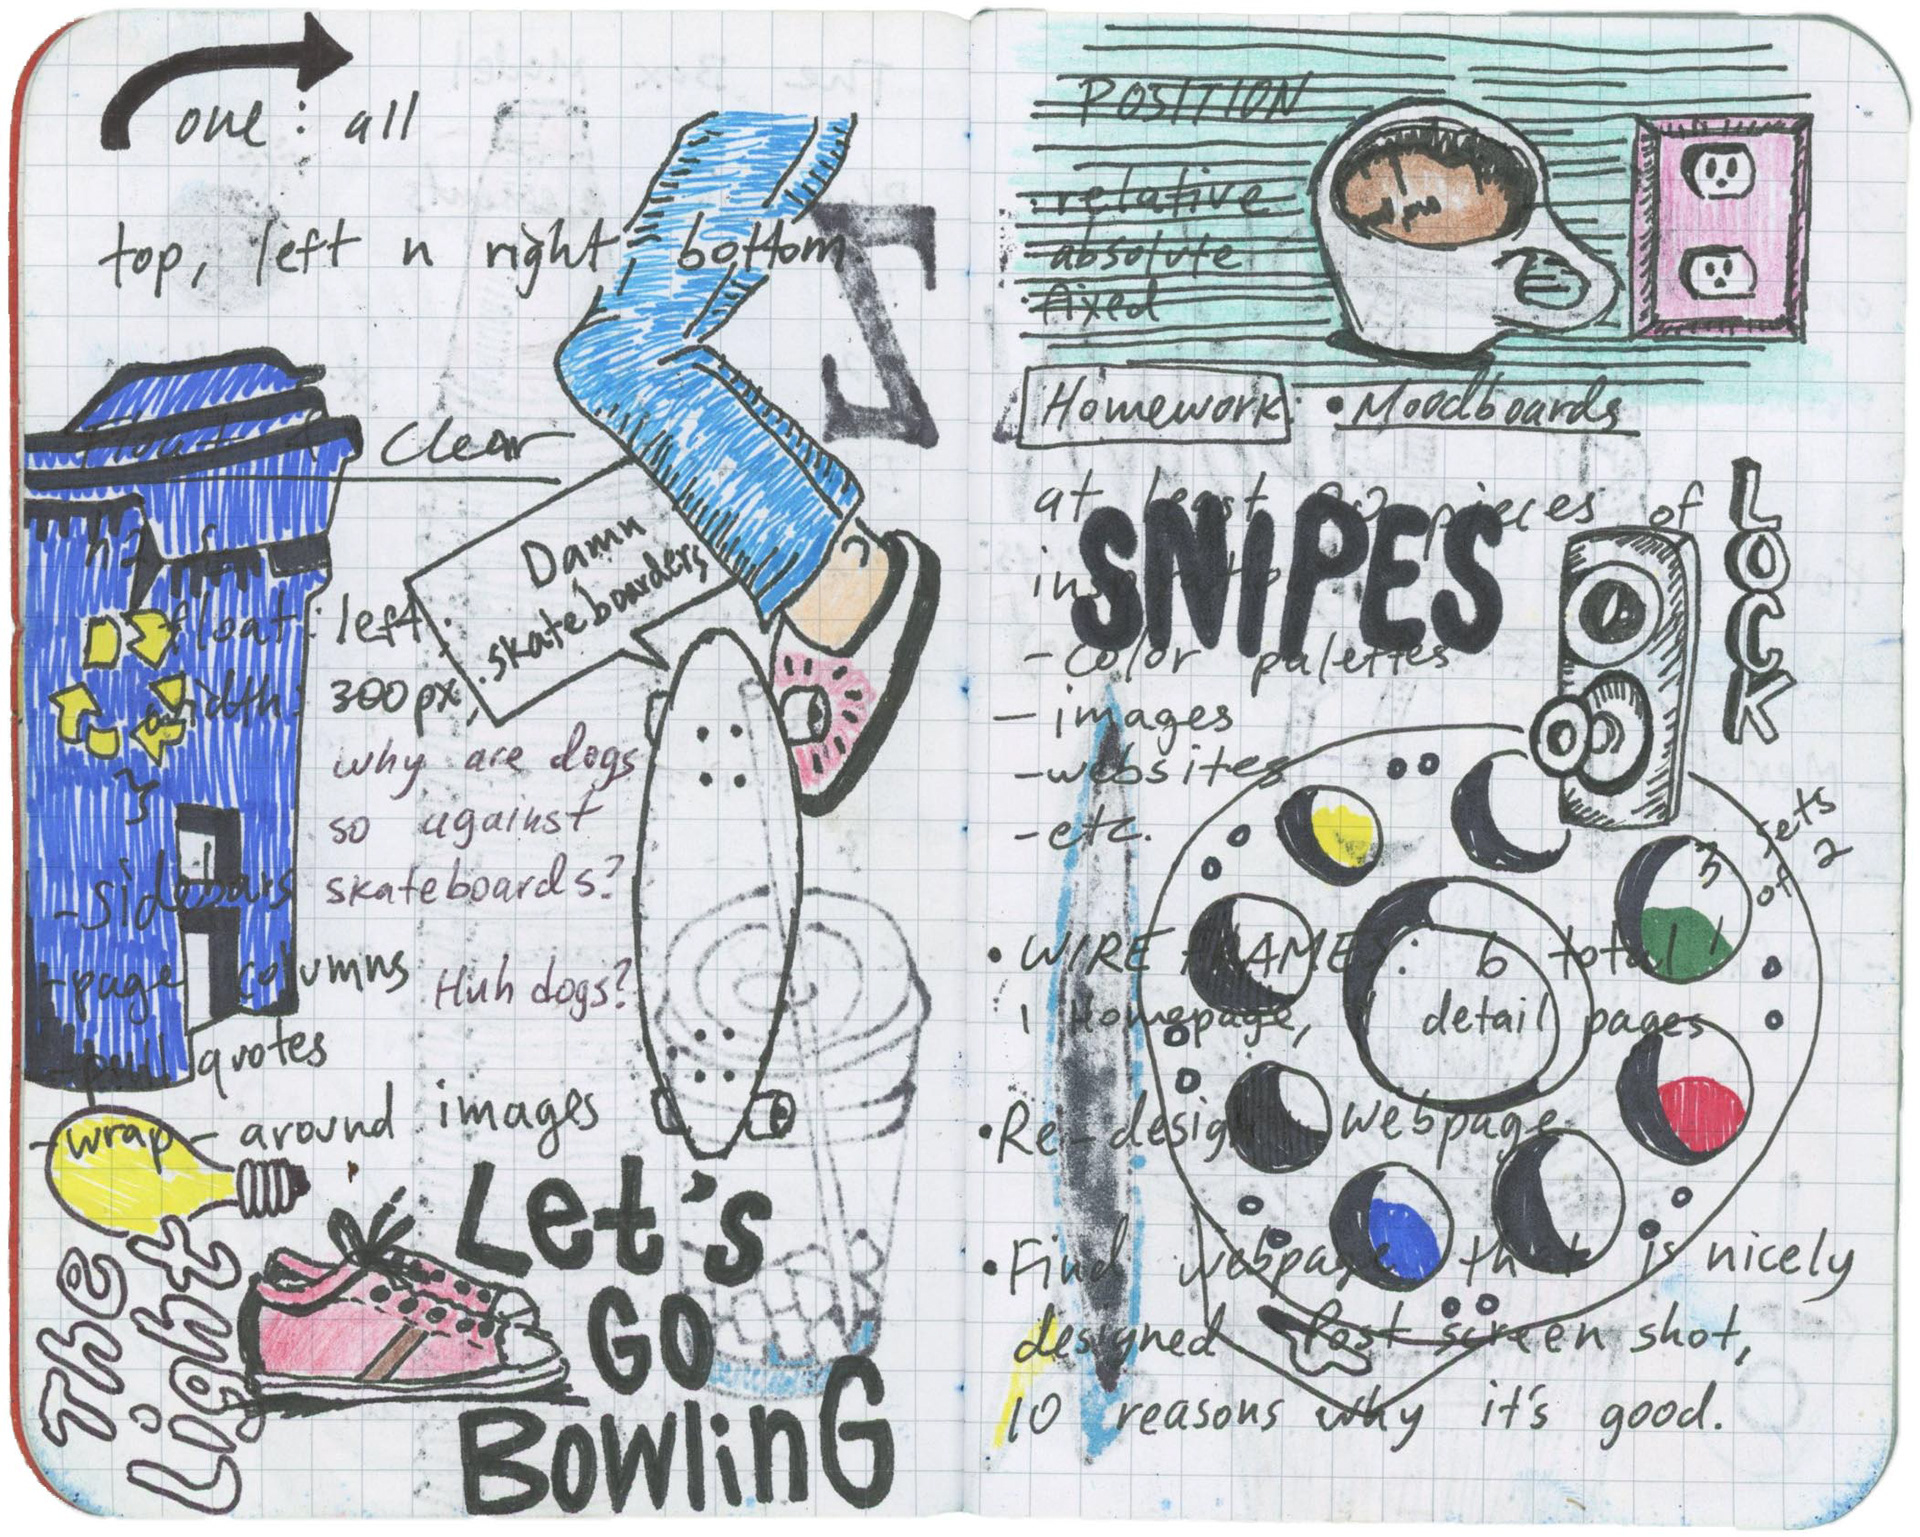 one : all
top, left n right, bottom
float & clear
float: left;
width: 300px;
}
Damn
skateboarders
why are dogs
so against
skateboards?
Huh dogs?
- sidebars
- page columns
- pull quotes
- wrap - around images
The
Light
Let's
GO
BOWLING
Z
POSITION
· relative
· absolute
· fixed
Homework: • Moodboards
at least 20 pieces of
SNIPES
LOCK
- color palettes
- images
- websites
- etc.
3 sets
of 2
• WIRE FRAMES: 6 total
1 Homepage, 1 detail pages
• Re-design webpage
• Find webpage that is nicely
designed post screen shot,
10 reasons why it's good.